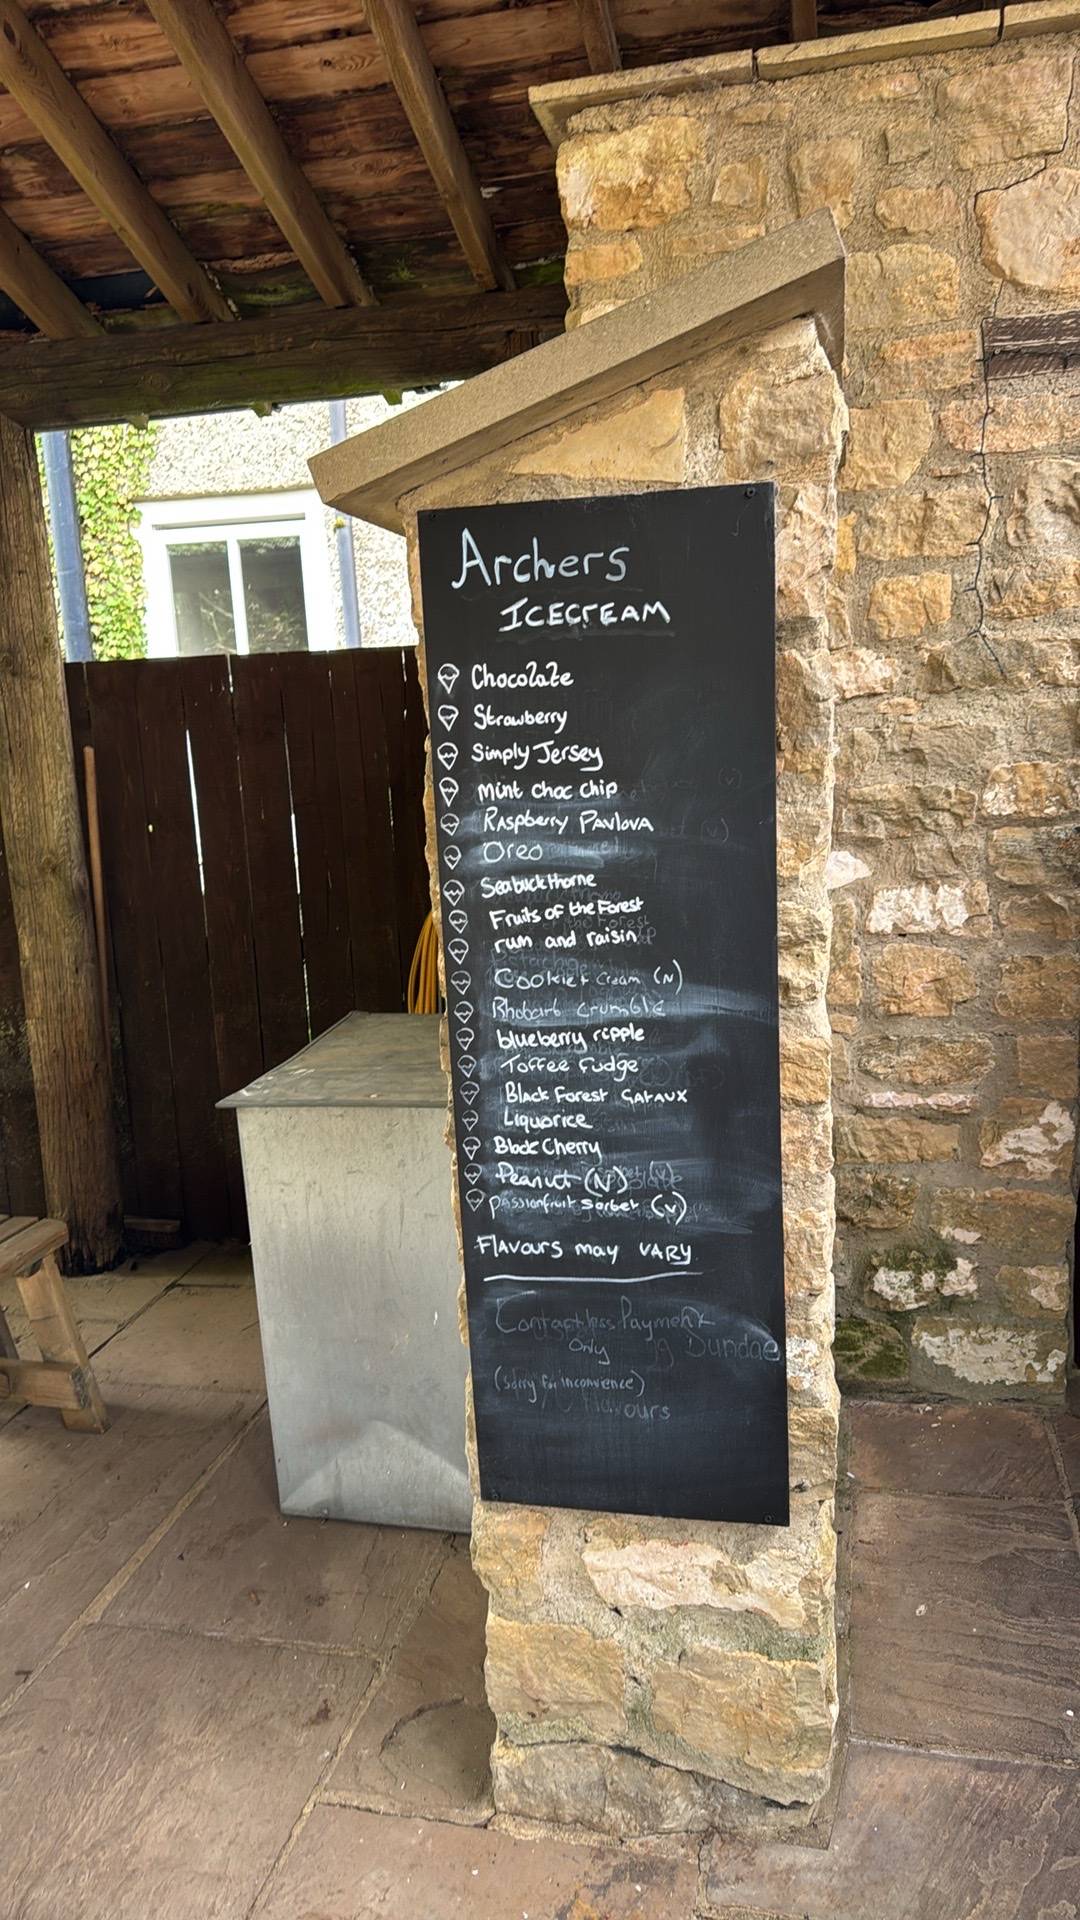 Archers
ICECREAM
Chocolate
Strawberry
Simply Jersey
Mint choc chip
Raspberry Pavlova
Oreo
Seabuckthorne
Fruits of the Forest
rum and raisin
Cookie + Cream (N)
Rhobarb crumble
blueberry ripple
Toffee Fudge
Black Forest GATAUX
Liquorice
Black Cherry
Peanut (N)
Passionfruit Sorbet (v)
Flavours may VARY
Contactless Payment
Only
Dundae
(Sorry for inconvience)
ours